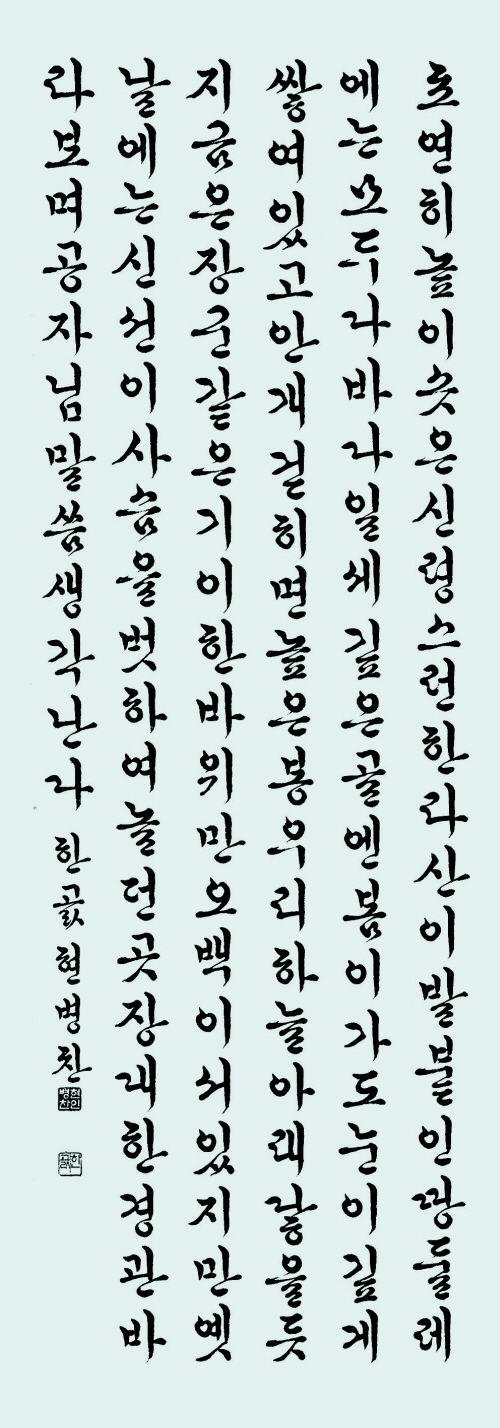 초연히높이솟은신령스런한라산이발붙인땅둘레
에는모두다바다일세깊은골엔봄이가도눈이깊게
쌓여있고안개걷히면높은봉우리하늘아래닿을듯
지금은장군같은기이한바위만오백이서있지만옛
날에는신선이사슴을벗하여놀던곳장대한경관바
라보며공자님말씀생각난다 한곬현병찬